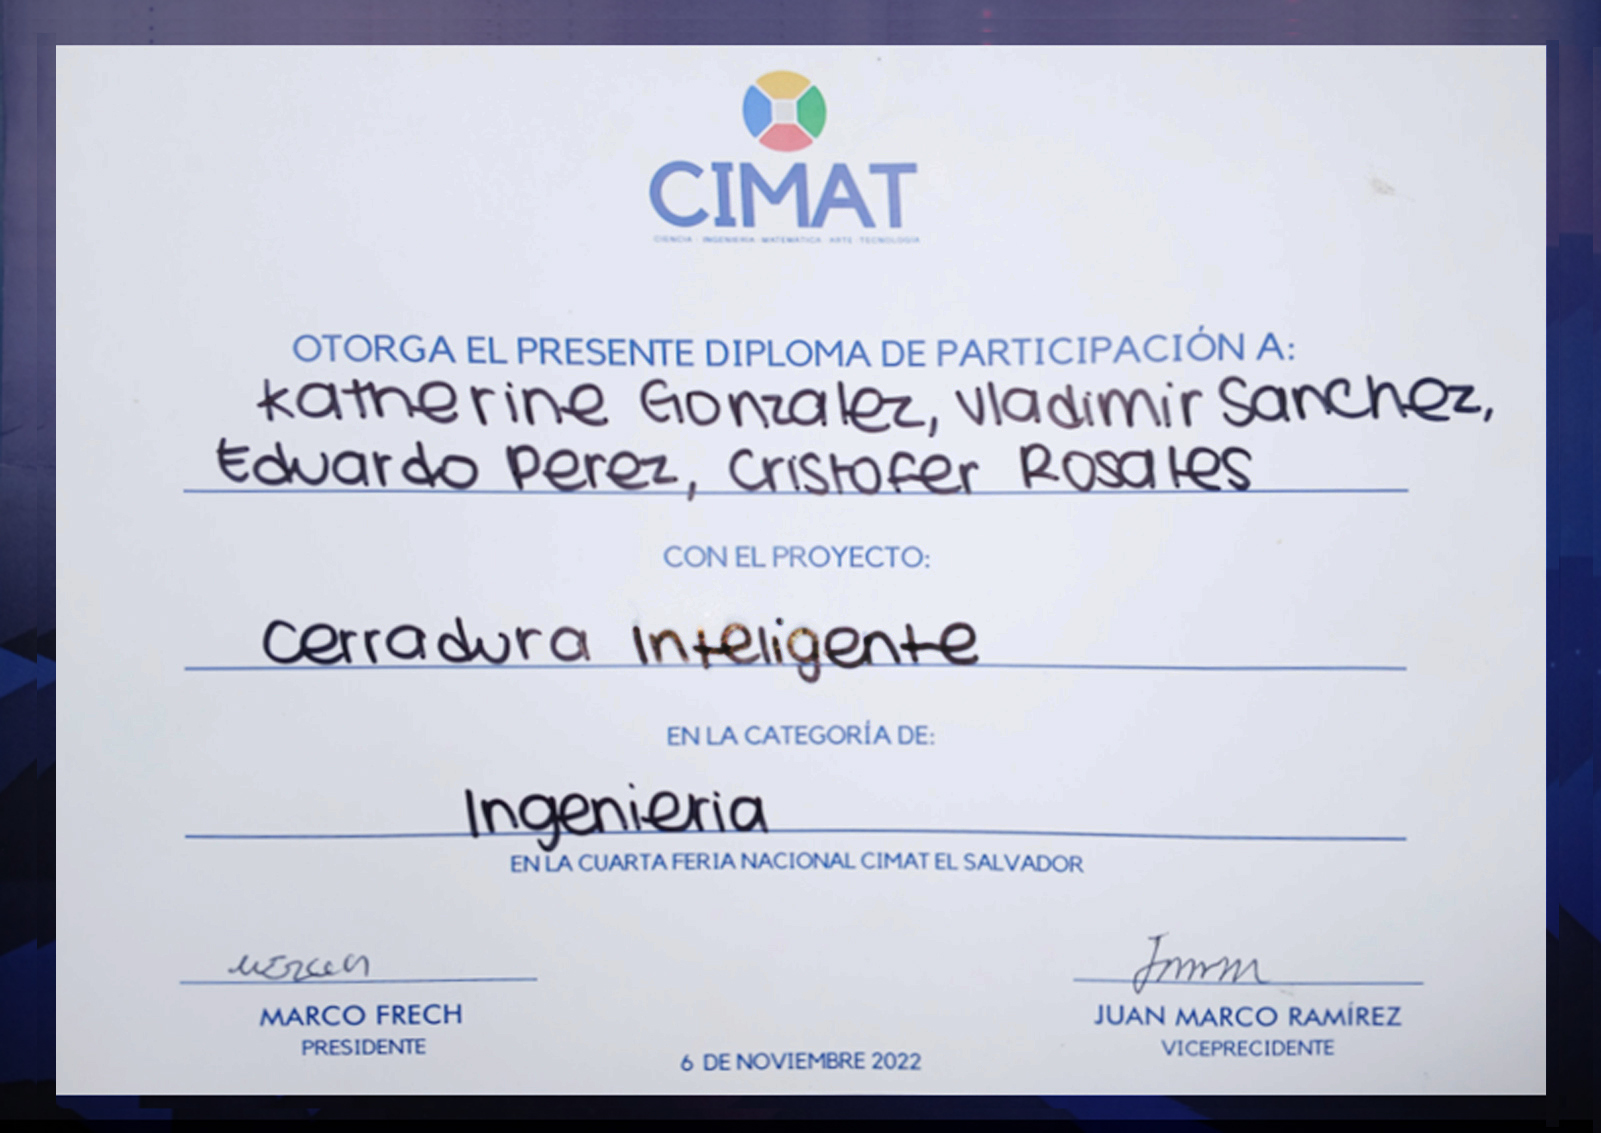 CIMAT
CIENCIA · INGENIERIA · MATEMATICA · ARTE · TECNOLOGIA
OTORGA EL PRESENTE DIPLOMA DE PARTICIPACIÓN A:
Katherine Gonzalez, Vladimir Sanchez,
Eduardo Perez, Cristofer Rosales
CON EL PROYECTO:
Cerradura Inteligente
EN LA CATEGORÍA DE:
Ingenieria
EN LA CUARTA FERIA NACIONAL CIMAT EL SALVADOR
MARCO FRECH
PRESIDENTE
JUAN MARCO RAMÍREZ
VICEPRECIDENTE
6 DE NOVIEMBRE 2022